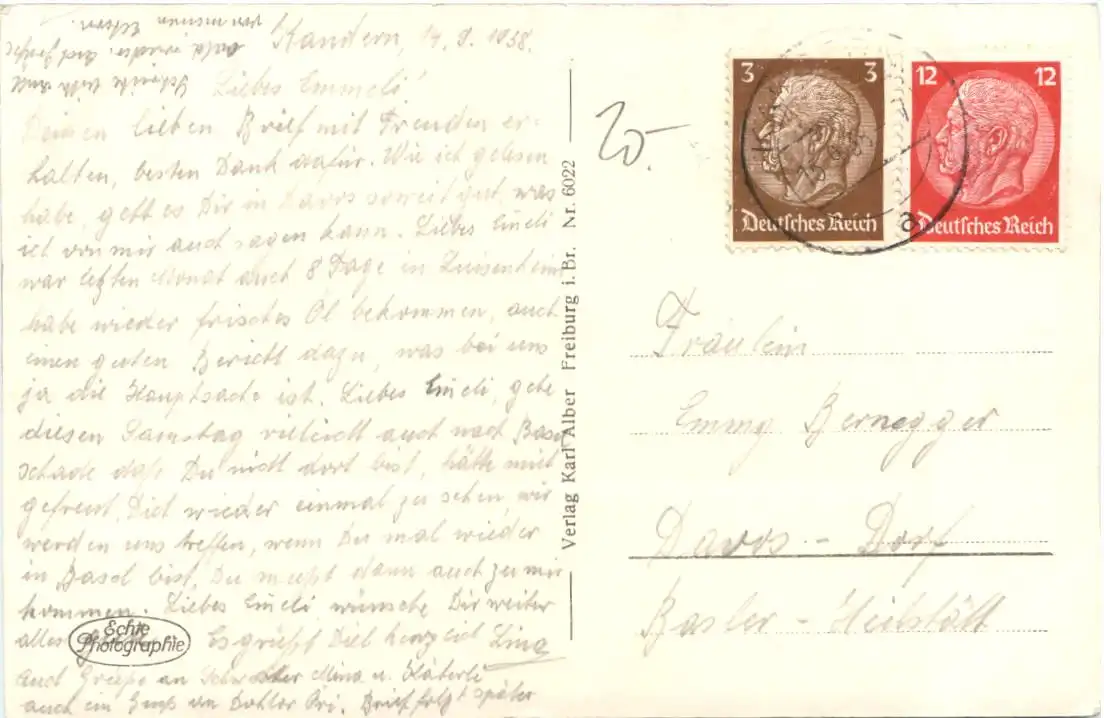 Kandern, 14. 9. 1938.
Liebes Emmeli!
Deinen lieben Brief mit Freuden er-
halten, besten Dank dafür. Wie ich gelesen
habe, geht es Dir in Davos soweit gut, was
ich von mir auch sagen kann. Liebes Emeli
war letzten Monat auch 8 Tage in Luisenheim
habe wieder frisches Öl bekommen, auch
einen guten Bericht dazu, was bei uns
ja die Hauptsache ist. Liebes Emeli, gehe
diesen Samstag vielleicht auch nach Basel
schade daß Du nicht dort bist, hätte mich
gefreut, Dich wieder einmal zu sehen, wir
werden uns treffen, wenn Du mal wieder
in Basel bist. Du mußt dann auch zu mir
kommen. Liebes Emeli wünsche Dir weiter
alles Es grüßt Dich herzlich Lina
auch Grüße an Schwester Mina u. Käterli
auch ein Gruß an Doktor Pri. Brief folgt später
Schreibe bitte
bald wieder. Auch Grüße
von meinen Eltern.
Echte
Photographie
Verlag Karl Alber Freiburg i. Br. Nr. 6022
20.-
3 3
Deutsches Reich
12 12
Deutsches Reich
a
Fräulein
Emmy Bernegger
Davos - Dorf
Basler - Heilstätt